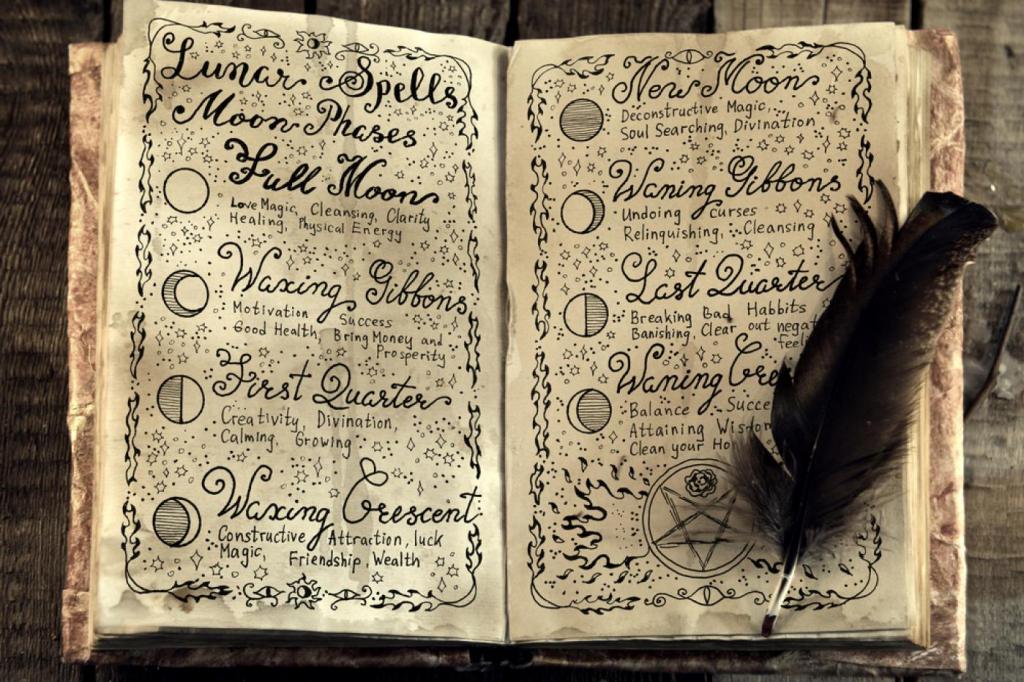 Lunar Spells
Moon Phases
Full Moon
Love Magic, Cleansing, Clarity
Healing, Physical Energy
Waxing Gibbons
Motivation Success
Good Health, Bring Money and
Prosperity
First Quarter
Creativity, Divination
Calming, Growing
Waxing Crescent
Constructive Attraction, luck
Magic, Friendship, Wealth
New Moon
Deconstructive Magic
Soul Searching, Divination
Waning Gibbons
Undoing curses
Relinquishing, Cleansing
Last Quarter
Breaking Bad Habbits
Banishing, Clear out
Waning
Balance
Attaining
Clean your